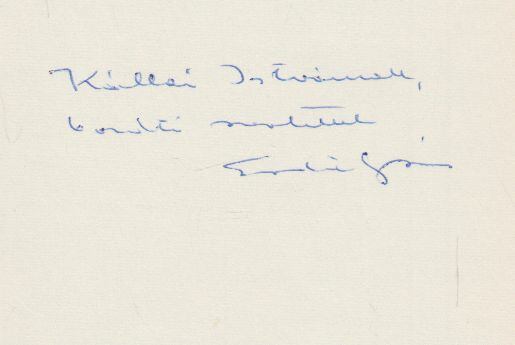 Kállai Istvánnak,
baráti szeretettel